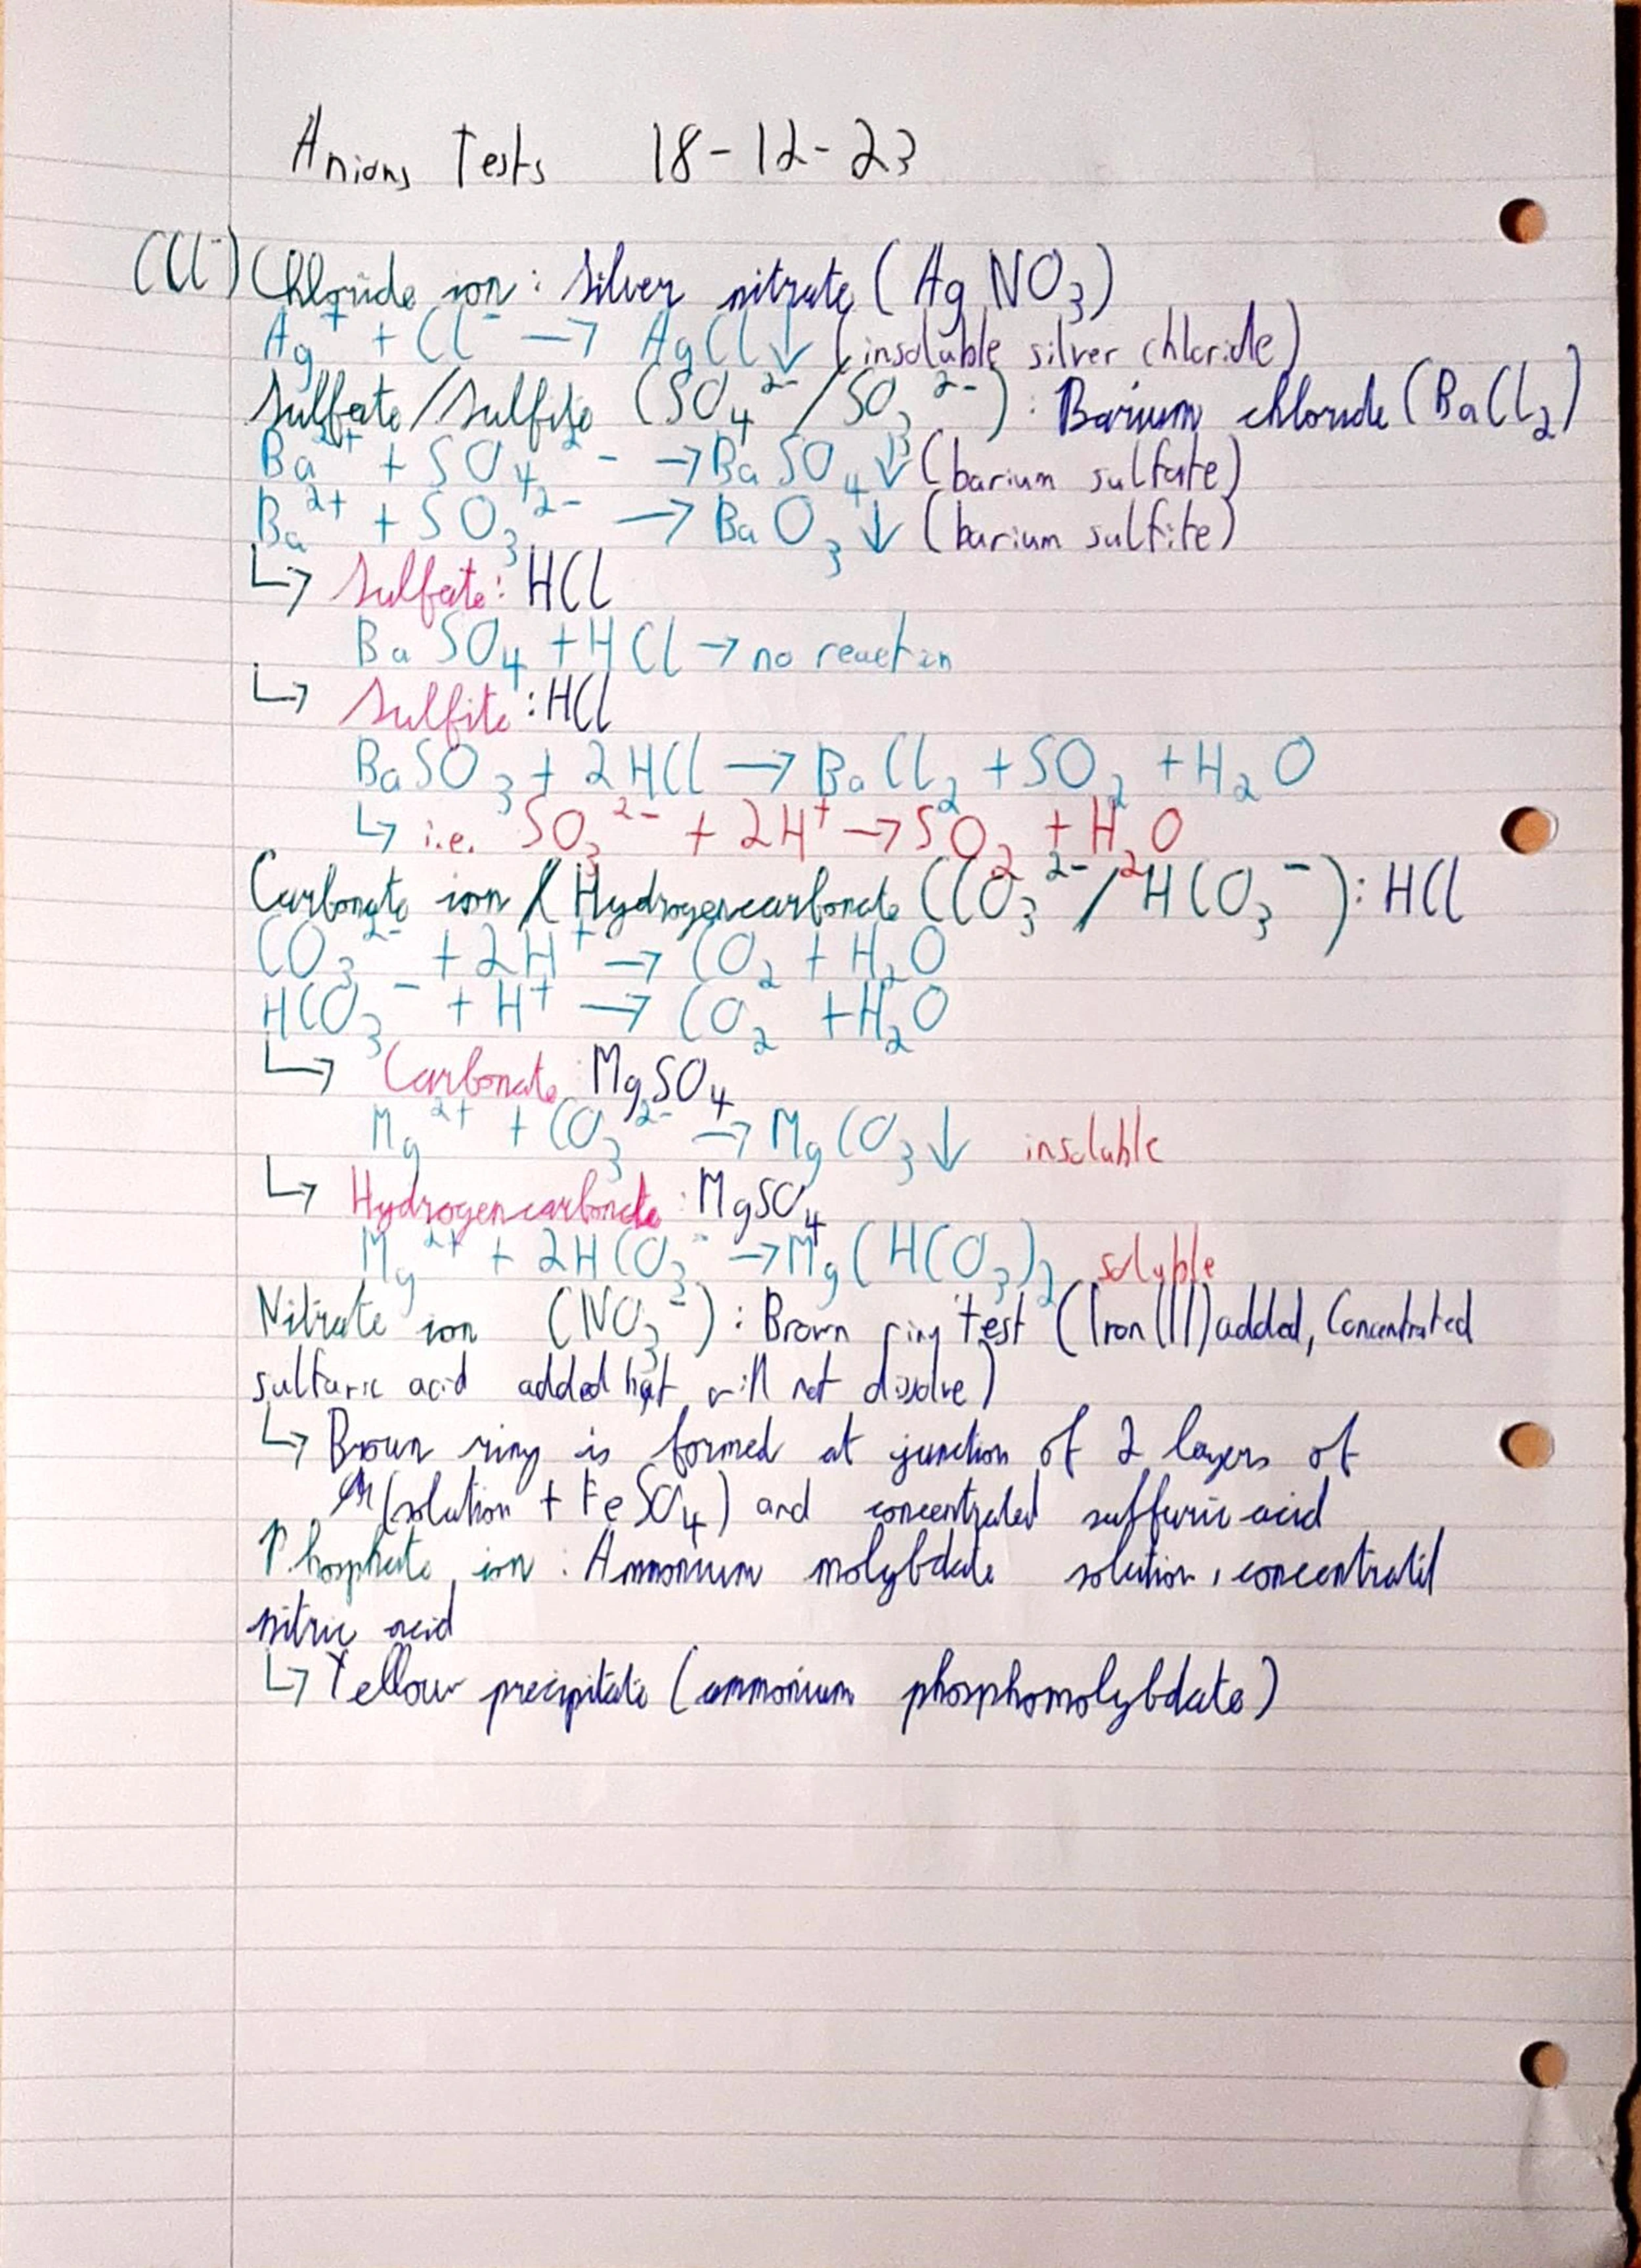 Anions Tests 18-12-23
(Cl⁻) Chloride ion : Silver nitrate (AgNO₃)
Ag⁺ + Cl⁻ → AgCl↓ (insoluble silver chloride)
Sulfate/Sulfite (SO₄²⁻/SO₃²⁻) : Barium chloride (BaCl₂)
Ba²⁺ + SO₄²⁻ → BaSO₄↓ (barium sulfate)
Ba²⁺ + SO₃²⁻ → BaO₃↓ (barium sulfite)
↳ Sulfate: HCl
BaSO₄ + HCl → no reaction
↳ Sulfite: HCl
BaSO₃ + 2HCl → BaCl₂ + SO₂ + H₂O
↳ i.e. SO₃²⁻ + 2H⁺ → SO₂ + H₂O
Carbonate ion / Hydrogencarbonate (CO₃²⁻/HCO₃⁻): HCl
CO₃²⁻ + 2H⁺ → CO₂ + H₂O
HCO₃⁻ + H⁺ → CO₂ + H₂O
↳ Carbonate: MgSO₄
Mg²⁺ + CO₃²⁻ → MgCO₃↓ insoluble
↳ Hydrogencarbonate: MgSO₄
Mg²⁺ + 2HCO₃⁻ → Mg(HCO₃)₂ soluble
Nitrate ion (NO₃⁻) : Brown ring test (Iron(II) added, Concentrated
sulfuric acid added but will not dissolve)
↳ Brown ring is formed at junction of 2 layers of
(solution + FeSO₄) and concentrated sulfuric acid
Phosphate ion : Ammonium molybdate solution, concentrated
nitric acid
↳ Yellow precipitate (ammonium phosphomolybdate)